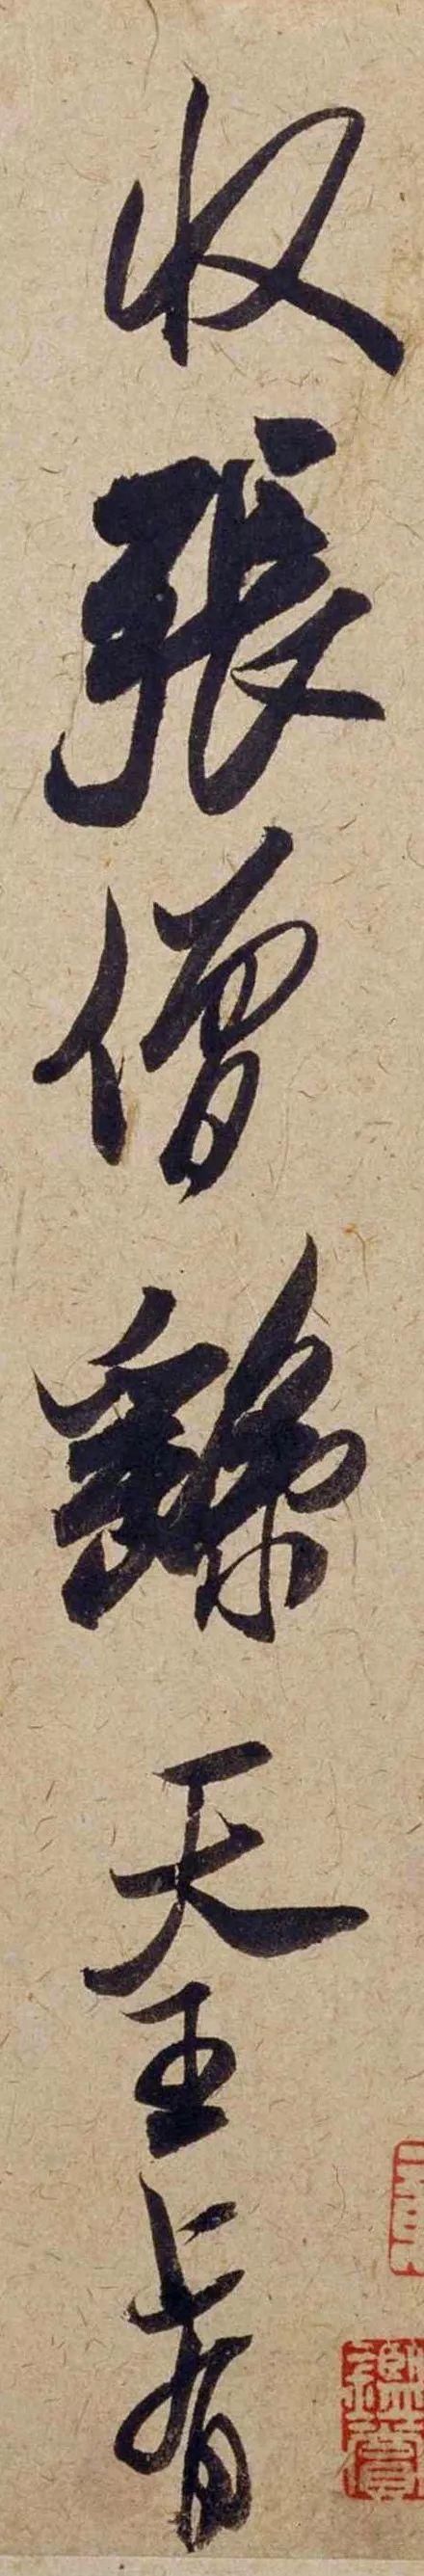 收張僧繇天王上有